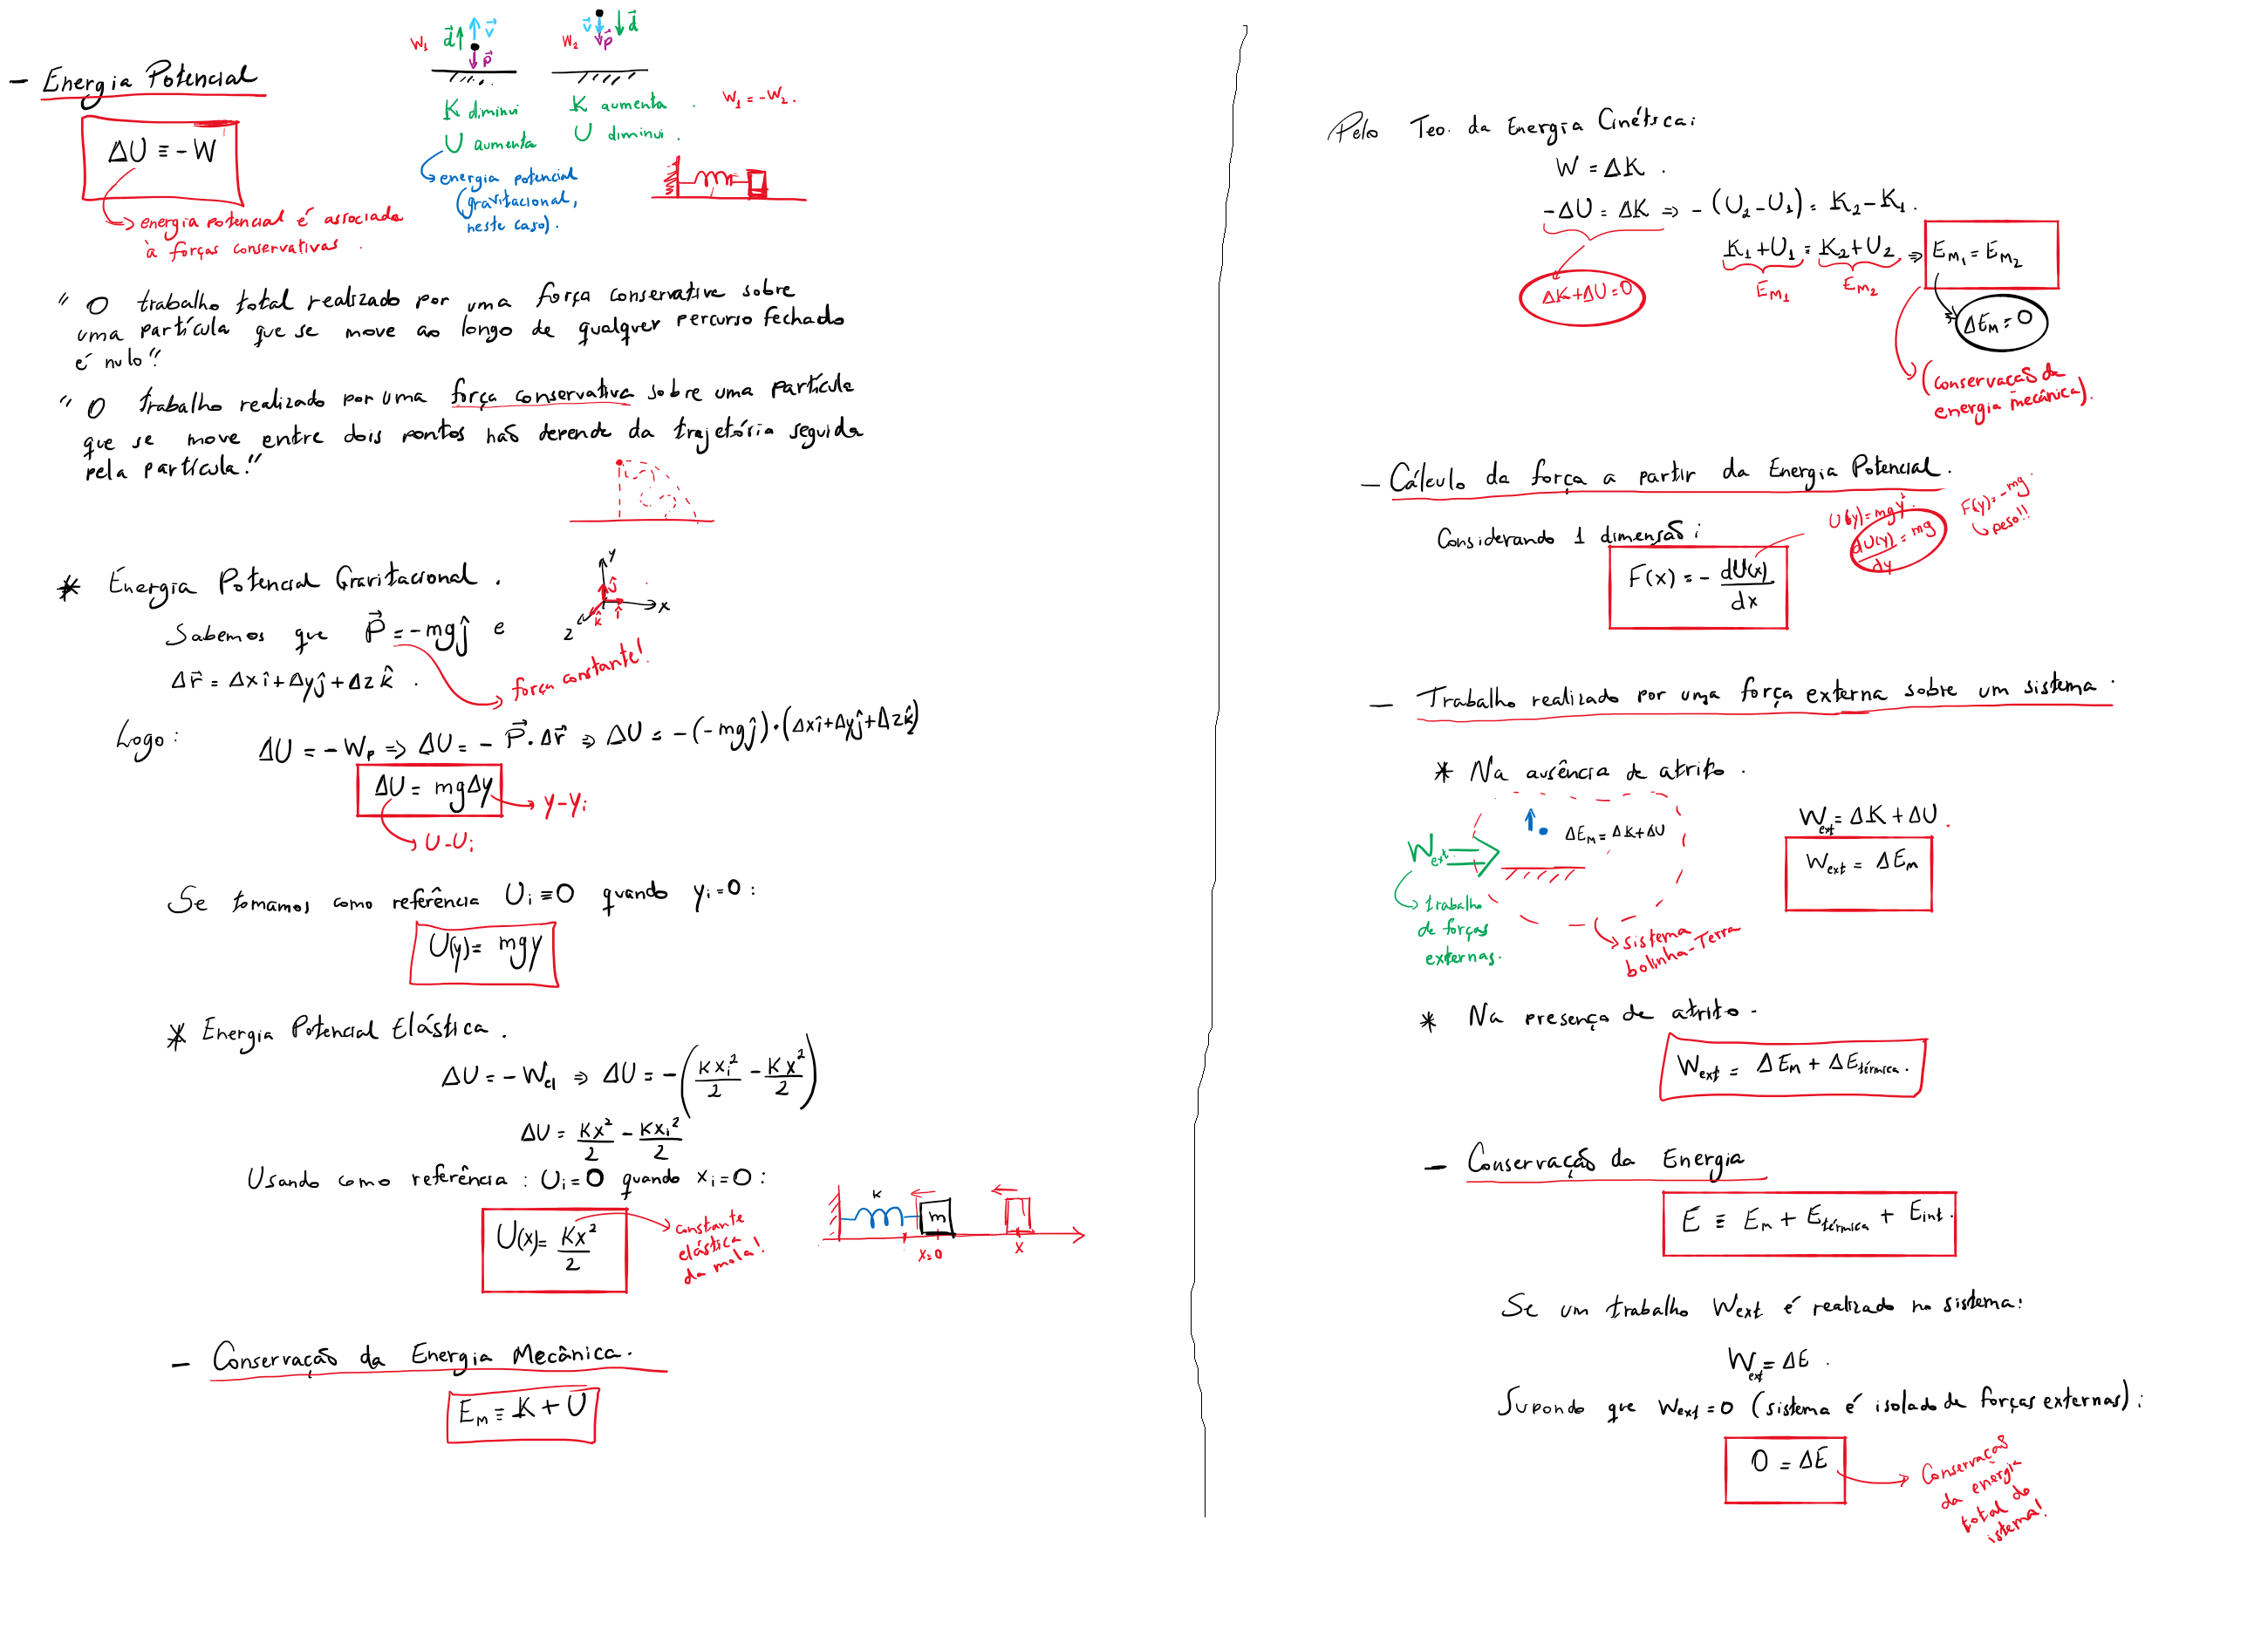 W₁ d⃗ v⃗ P⃗
W₂ v⃗ P⃗ d⃗
- Energia Potencial
K diminui
U aumenta
K aumenta.
U diminui.
W₁ = -W₂.
ΔU ≡ -W
energia potencial
(gravitacional,
neste caso).
energia potencial é associada
à forças conservativas.
" O trabalho total realizado por uma força conservative sobre
uma partícula que se move ao longo de qualquer percurso fechado
é nulo"
" O trabalho realizado por uma força conservativa sobre uma partícula
que se move entre dois pontos não depende da trajetória seguida
pela partícula."
* Energia Potencial Gravitacional.
y ĵ î x k̂ z
Sabemos que P⃗ = -mgĵ e
força constante!
Δr⃗ = Δxî+Δyĵ+Δzk̂.
Logo: ΔU = -Wₚ ⇒ ΔU = - P⃗·Δr⃗ ⇒ ΔU = -(-mgĵ)·(Δxî+Δyĵ+Δzk̂)
ΔU = mgΔy
y-yᵢ
U-Uᵢ
Se tomamos como referência Uᵢ≡0 quando yᵢ=0:
U(y)= mgy
* Energia Potencial Elástica.
ΔU = -W_el ⇒ ΔU = -(Kxᵢ²/2 - Kx²/2)
ΔU = Kx²/2 - Kxᵢ²/2
Usando como referência: Uᵢ=0 quando xᵢ=0:
U(x)= Kx²/2
constante
elástica
da mola!
K m
x=0 x
- Conservação da Energia Mecânica.
E_M ≡ K + U
Pelo Teo. da Energia Cinética:
W = ΔK.
-ΔU = ΔK ⇒ -(U₂-U₁) = K₂-K₁.
K₁+U₁ = K₂+U₂ ⇒ E_M₁ = E_M₂
E_M₁ E_M₂
ΔK+ΔU=0
ΔE_M=0
(conservação da
energia mecânica).
- Cálculo da força a partir da Energia Potencial.
Considerando 1 dimensão:
U(y)=mgy.
dU(y)/dy = mg
F(y)=-mg.
peso!!
F(x) = - dU(x)/dx
- Trabalho realizado por uma força externa sobre um sistema.
* Na ausência de atrito.
W_ext
ΔE_M = ΔK+ΔU
W_ext = ΔK + ΔU.
W_ext = ΔE_M
trabalho
de forças
externas.
sistema
bolinha-Terra
* Na presença de atrito.
W_ext = ΔE_M + ΔE_térmica.
- Conservação da Energia
E ≡ E_M + E_térmica + E_int.
Se um trabalho W_ext é realizado no sistema:
W_ext = ΔE.
Supondo que W_ext=0 (sistema é isolado de forças externas):
0 = ΔE
Conservação
da energia
total do
istema!